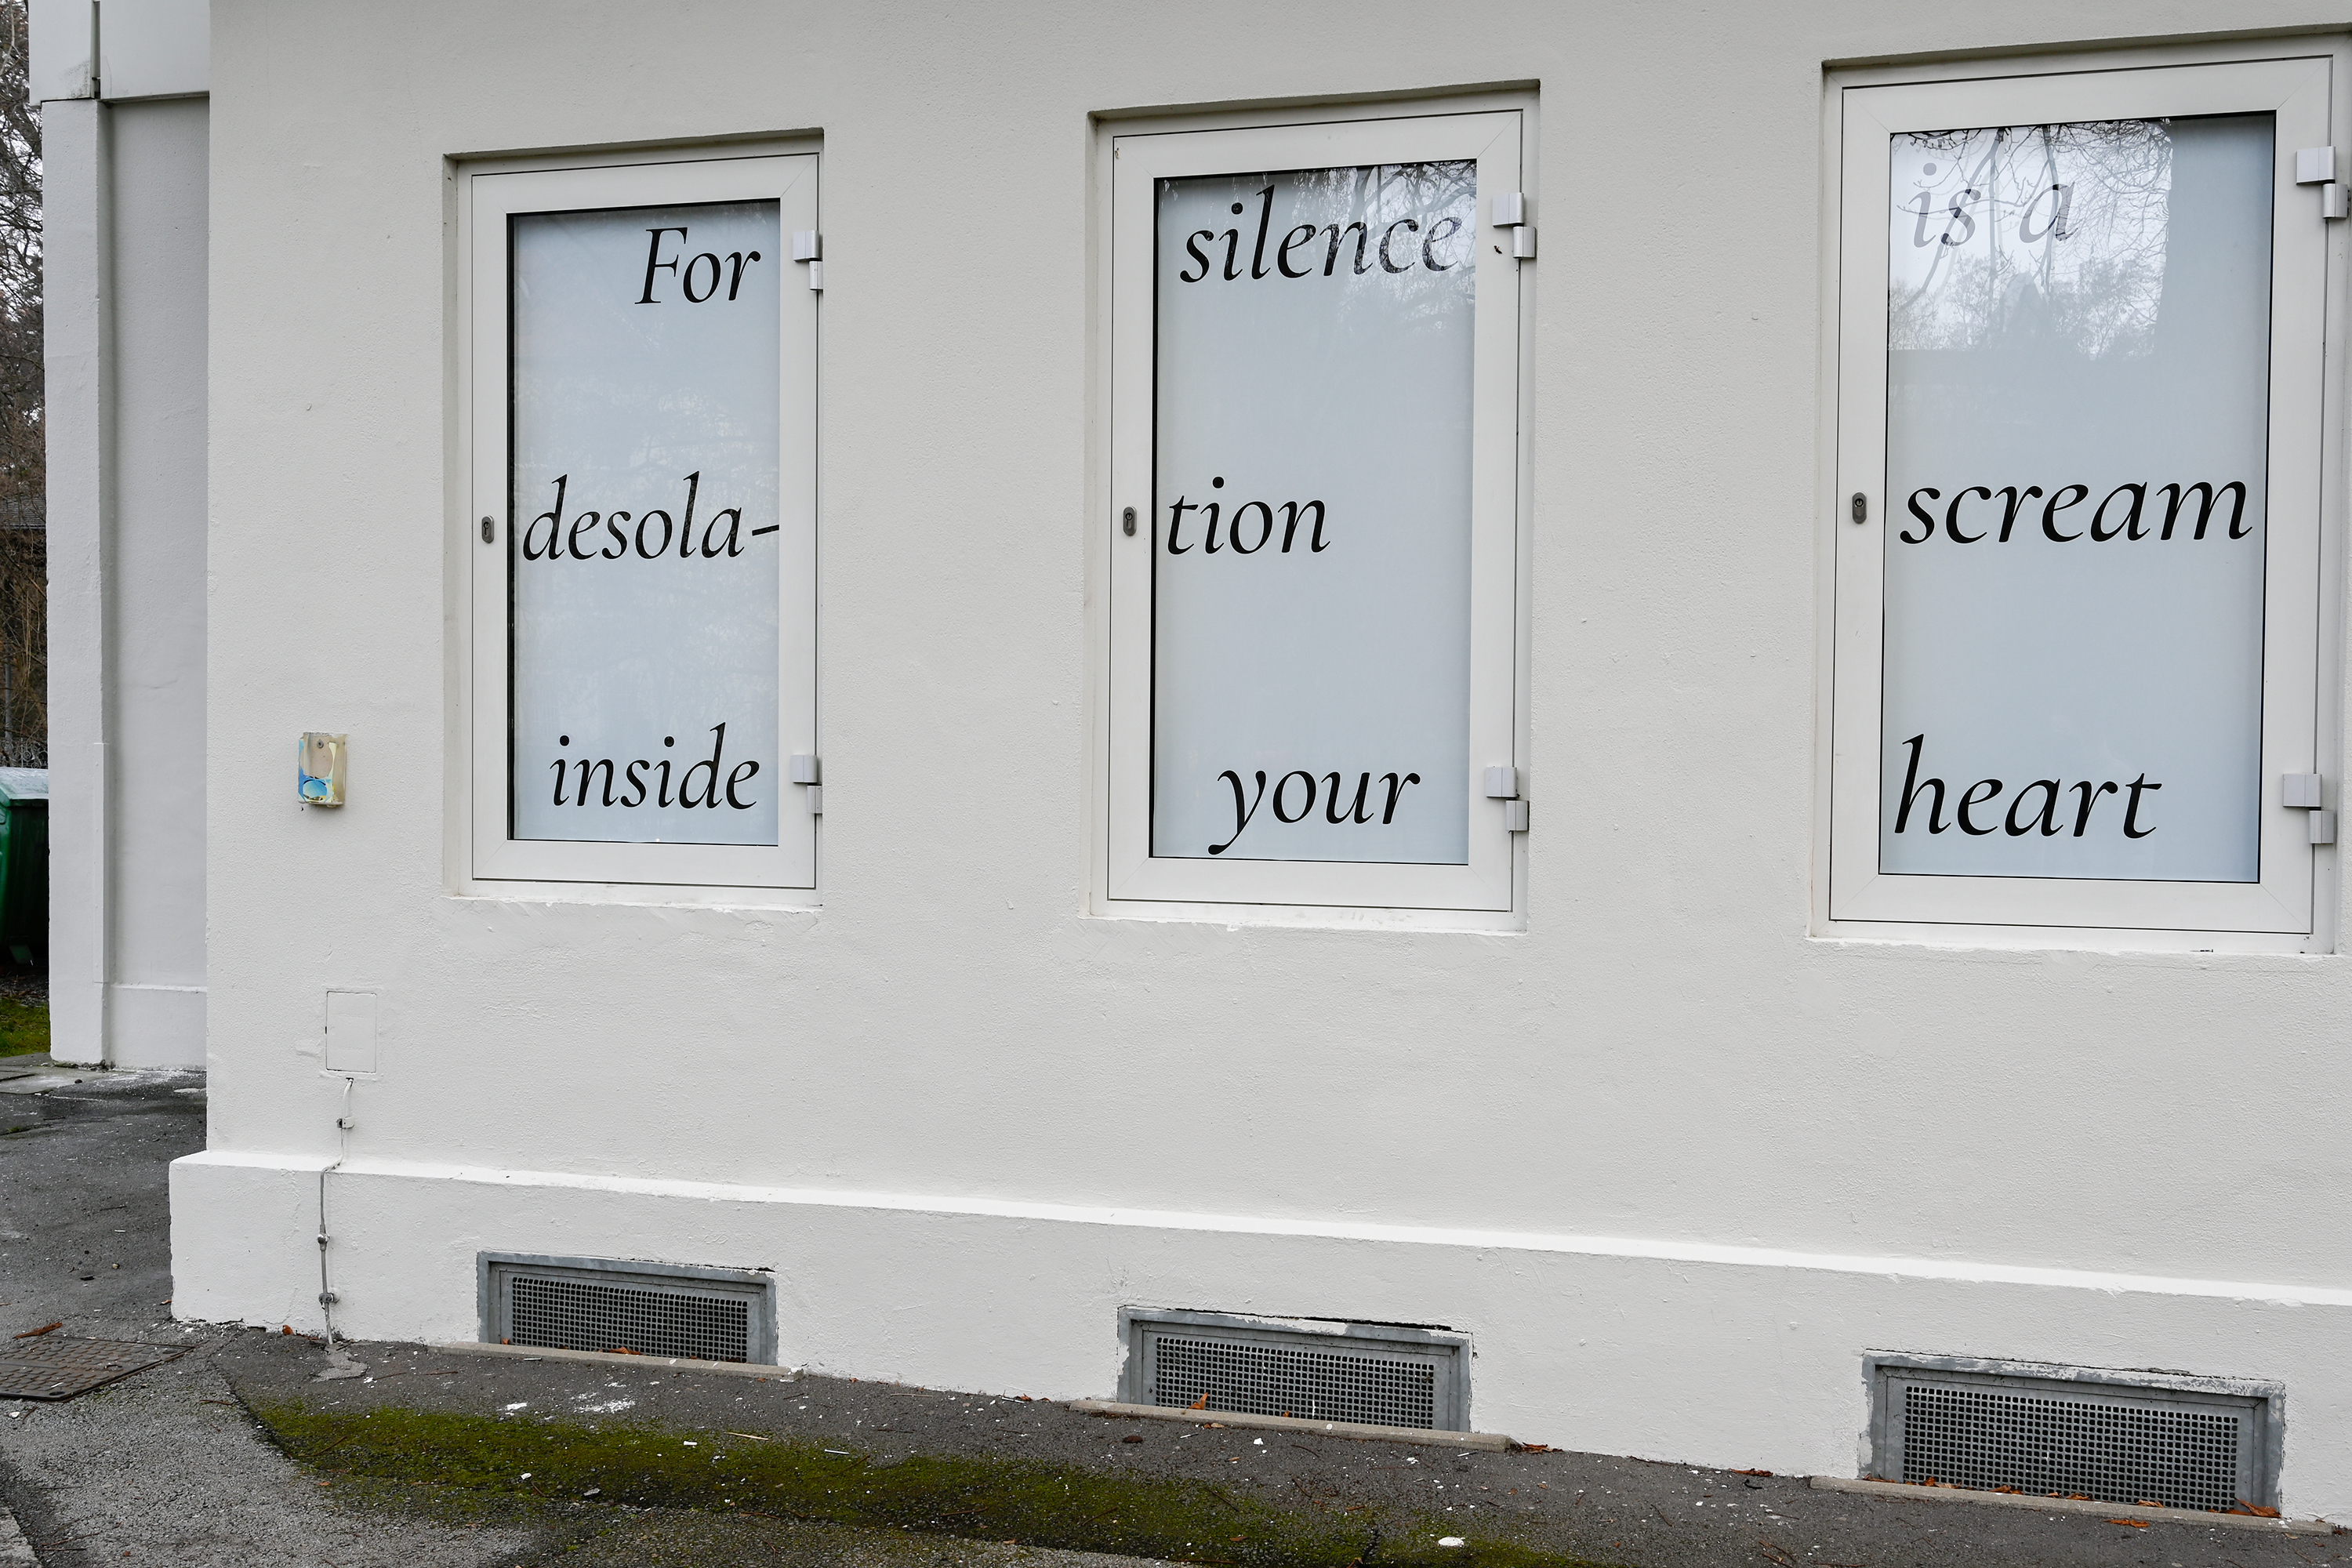 For silence is a
desola-tion scream
inside your heart